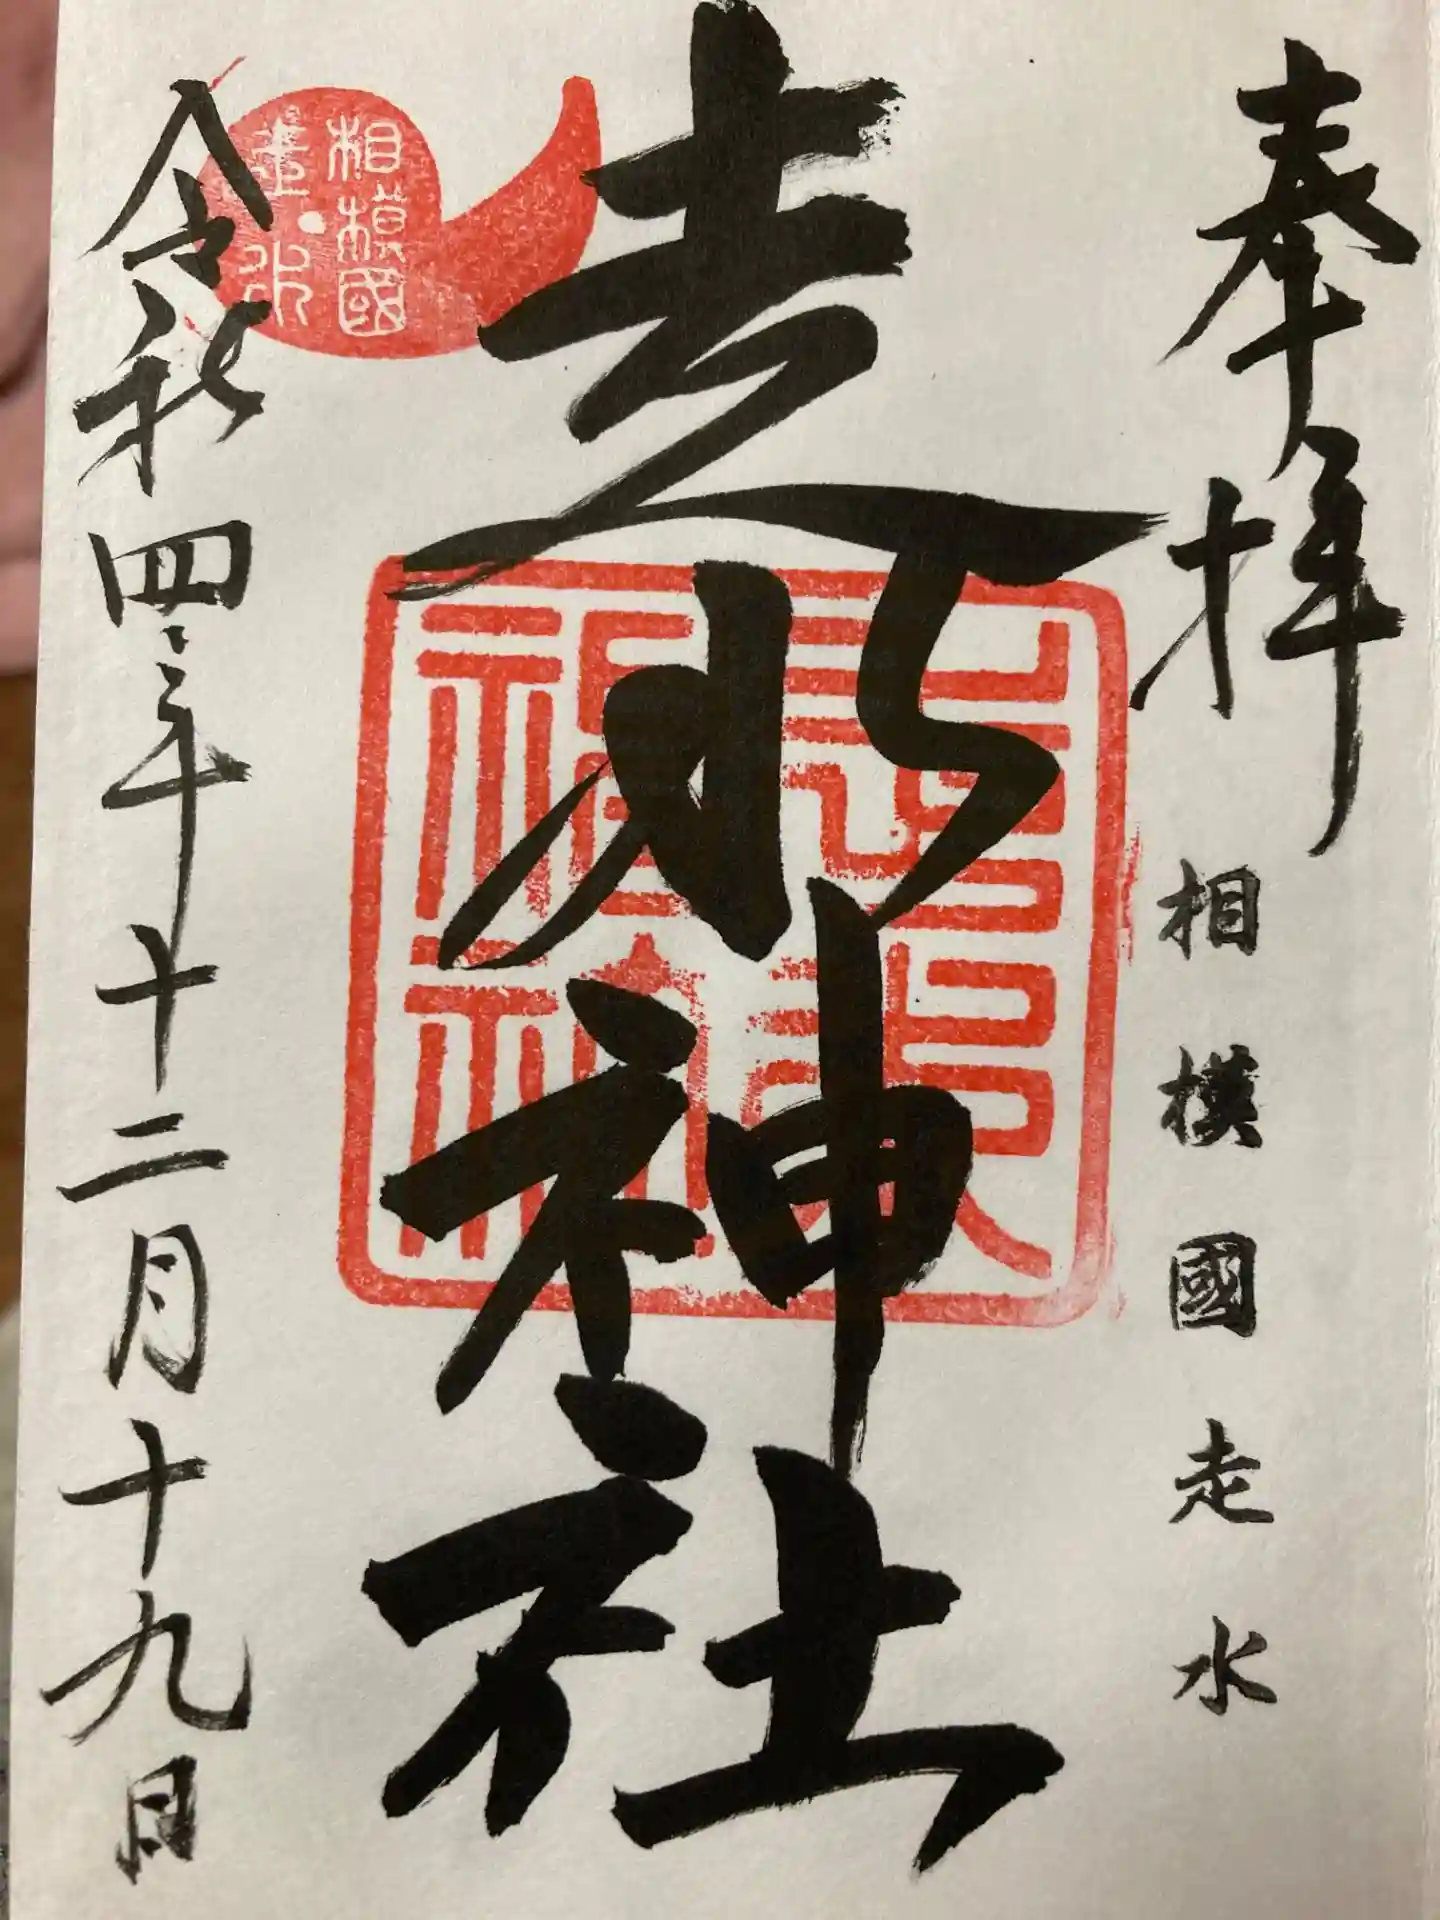 奉拝
相模國走水
走水神社
相模國
走水
走水神社
令和四年十二月十九日